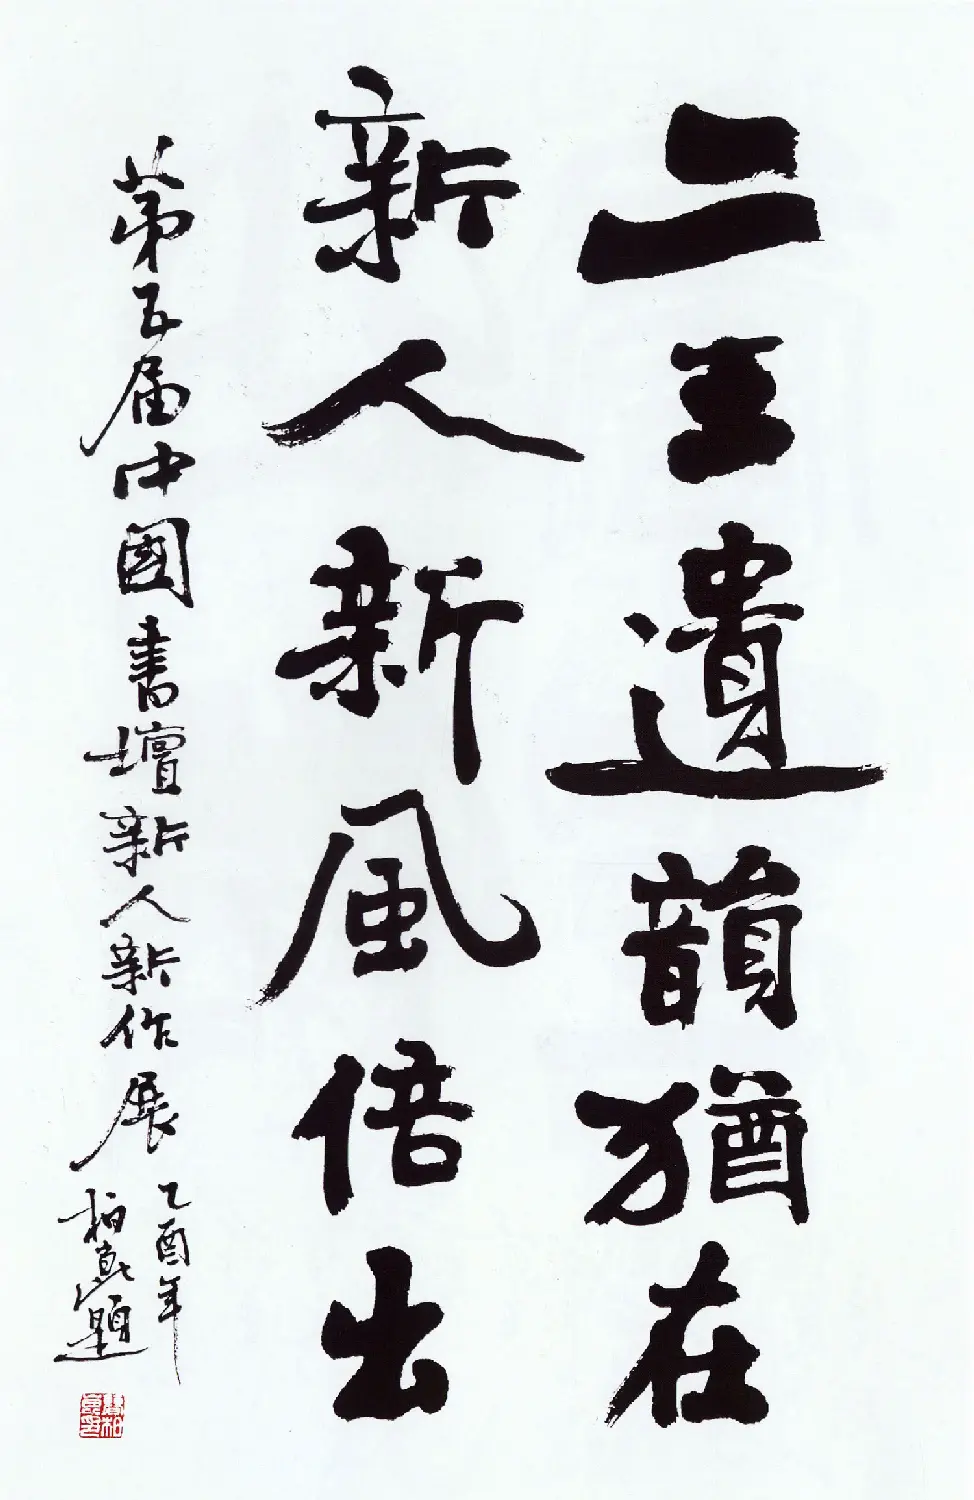 二王遺韻猶在
新人新風倍出
第五届中國書壇新人新作展
乙酉年
柏□題